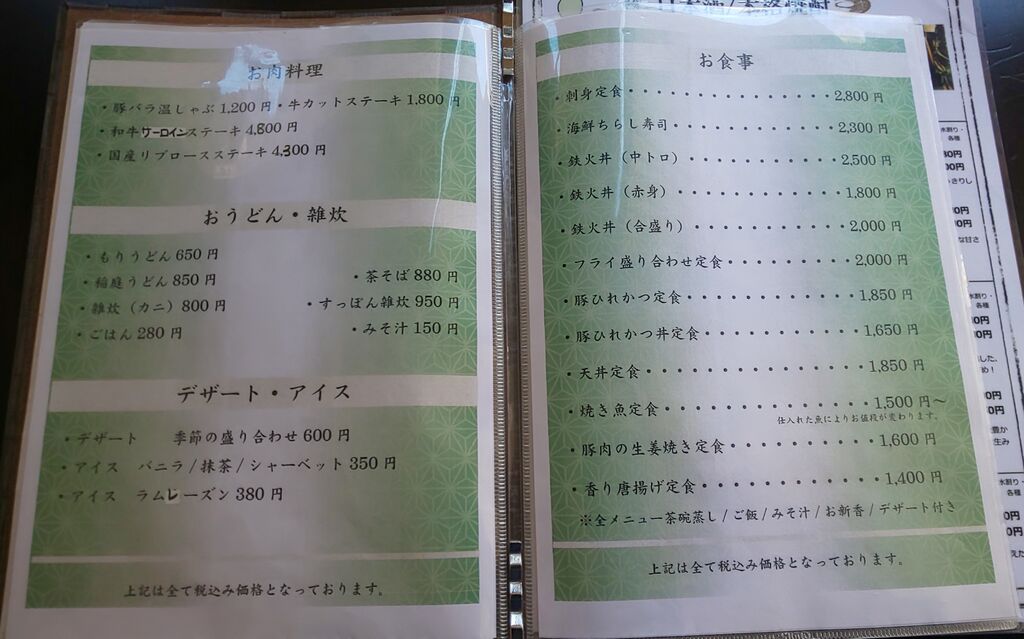 お肉料理
・豚バラ温しゃぶ 1,200 円・牛カットステーキ 1,800 円
・和牛サーロインステーキ 4,600 円
・国産リブロースステーキ 4,300 円
おうどん・雑炊
・もりうどん 650 円
・稲庭うどん 850 円
・茶そば 880 円
・雑炊（カニ）800 円
・すっぽん雑炊 950 円
・ごはん 280 円
・みそ汁 150 円
デザート・アイス
・デザート 季節の盛り合わせ 600 円
・アイス バニラ / 抹茶 / シャーベット 350 円
・アイス ラムレーズン 380 円
上記は全て税込み価格となっております。
お食事
・刺身定食・・・・・・・・・・・・・・・・2,800 円
・海鮮ちらし寿司・・・・・・・・・・・・・2,300 円
・鉄火丼（中トロ）・・・・・・・・・・・・2,500 円
・鉄火丼（赤身）・・・・・・・・・・・・・1,800 円
・鉄火丼（合盛り）・・・・・・・・・・・・2,000 円
・フライ盛り合わせ定食・・・・・・・・・・2,000 円
・豚ひれかつ定食・・・・・・・・・・・・・1,850 円
・豚ひれかつ丼定食・・・・・・・・・・・・1,650 円
・天丼定食・・・・・・・・・・・・・・・・1,850 円
・焼き魚定食・・・・・・・・・・・・・・・1,500 円～
仕入れた魚によりお値段が変わります。
・豚肉の生姜焼き定食・・・・・・・・・・・1,600 円
・香り唐揚げ定食・・・・・・・・・・・・・1,400 円
※全メニュー茶碗蒸し / ご飯 / みそ汁 / お新香 / デザート付き
上記は全て税込み価格となっております。
水割り・
各種
水割り・
各種
水割り・
各種